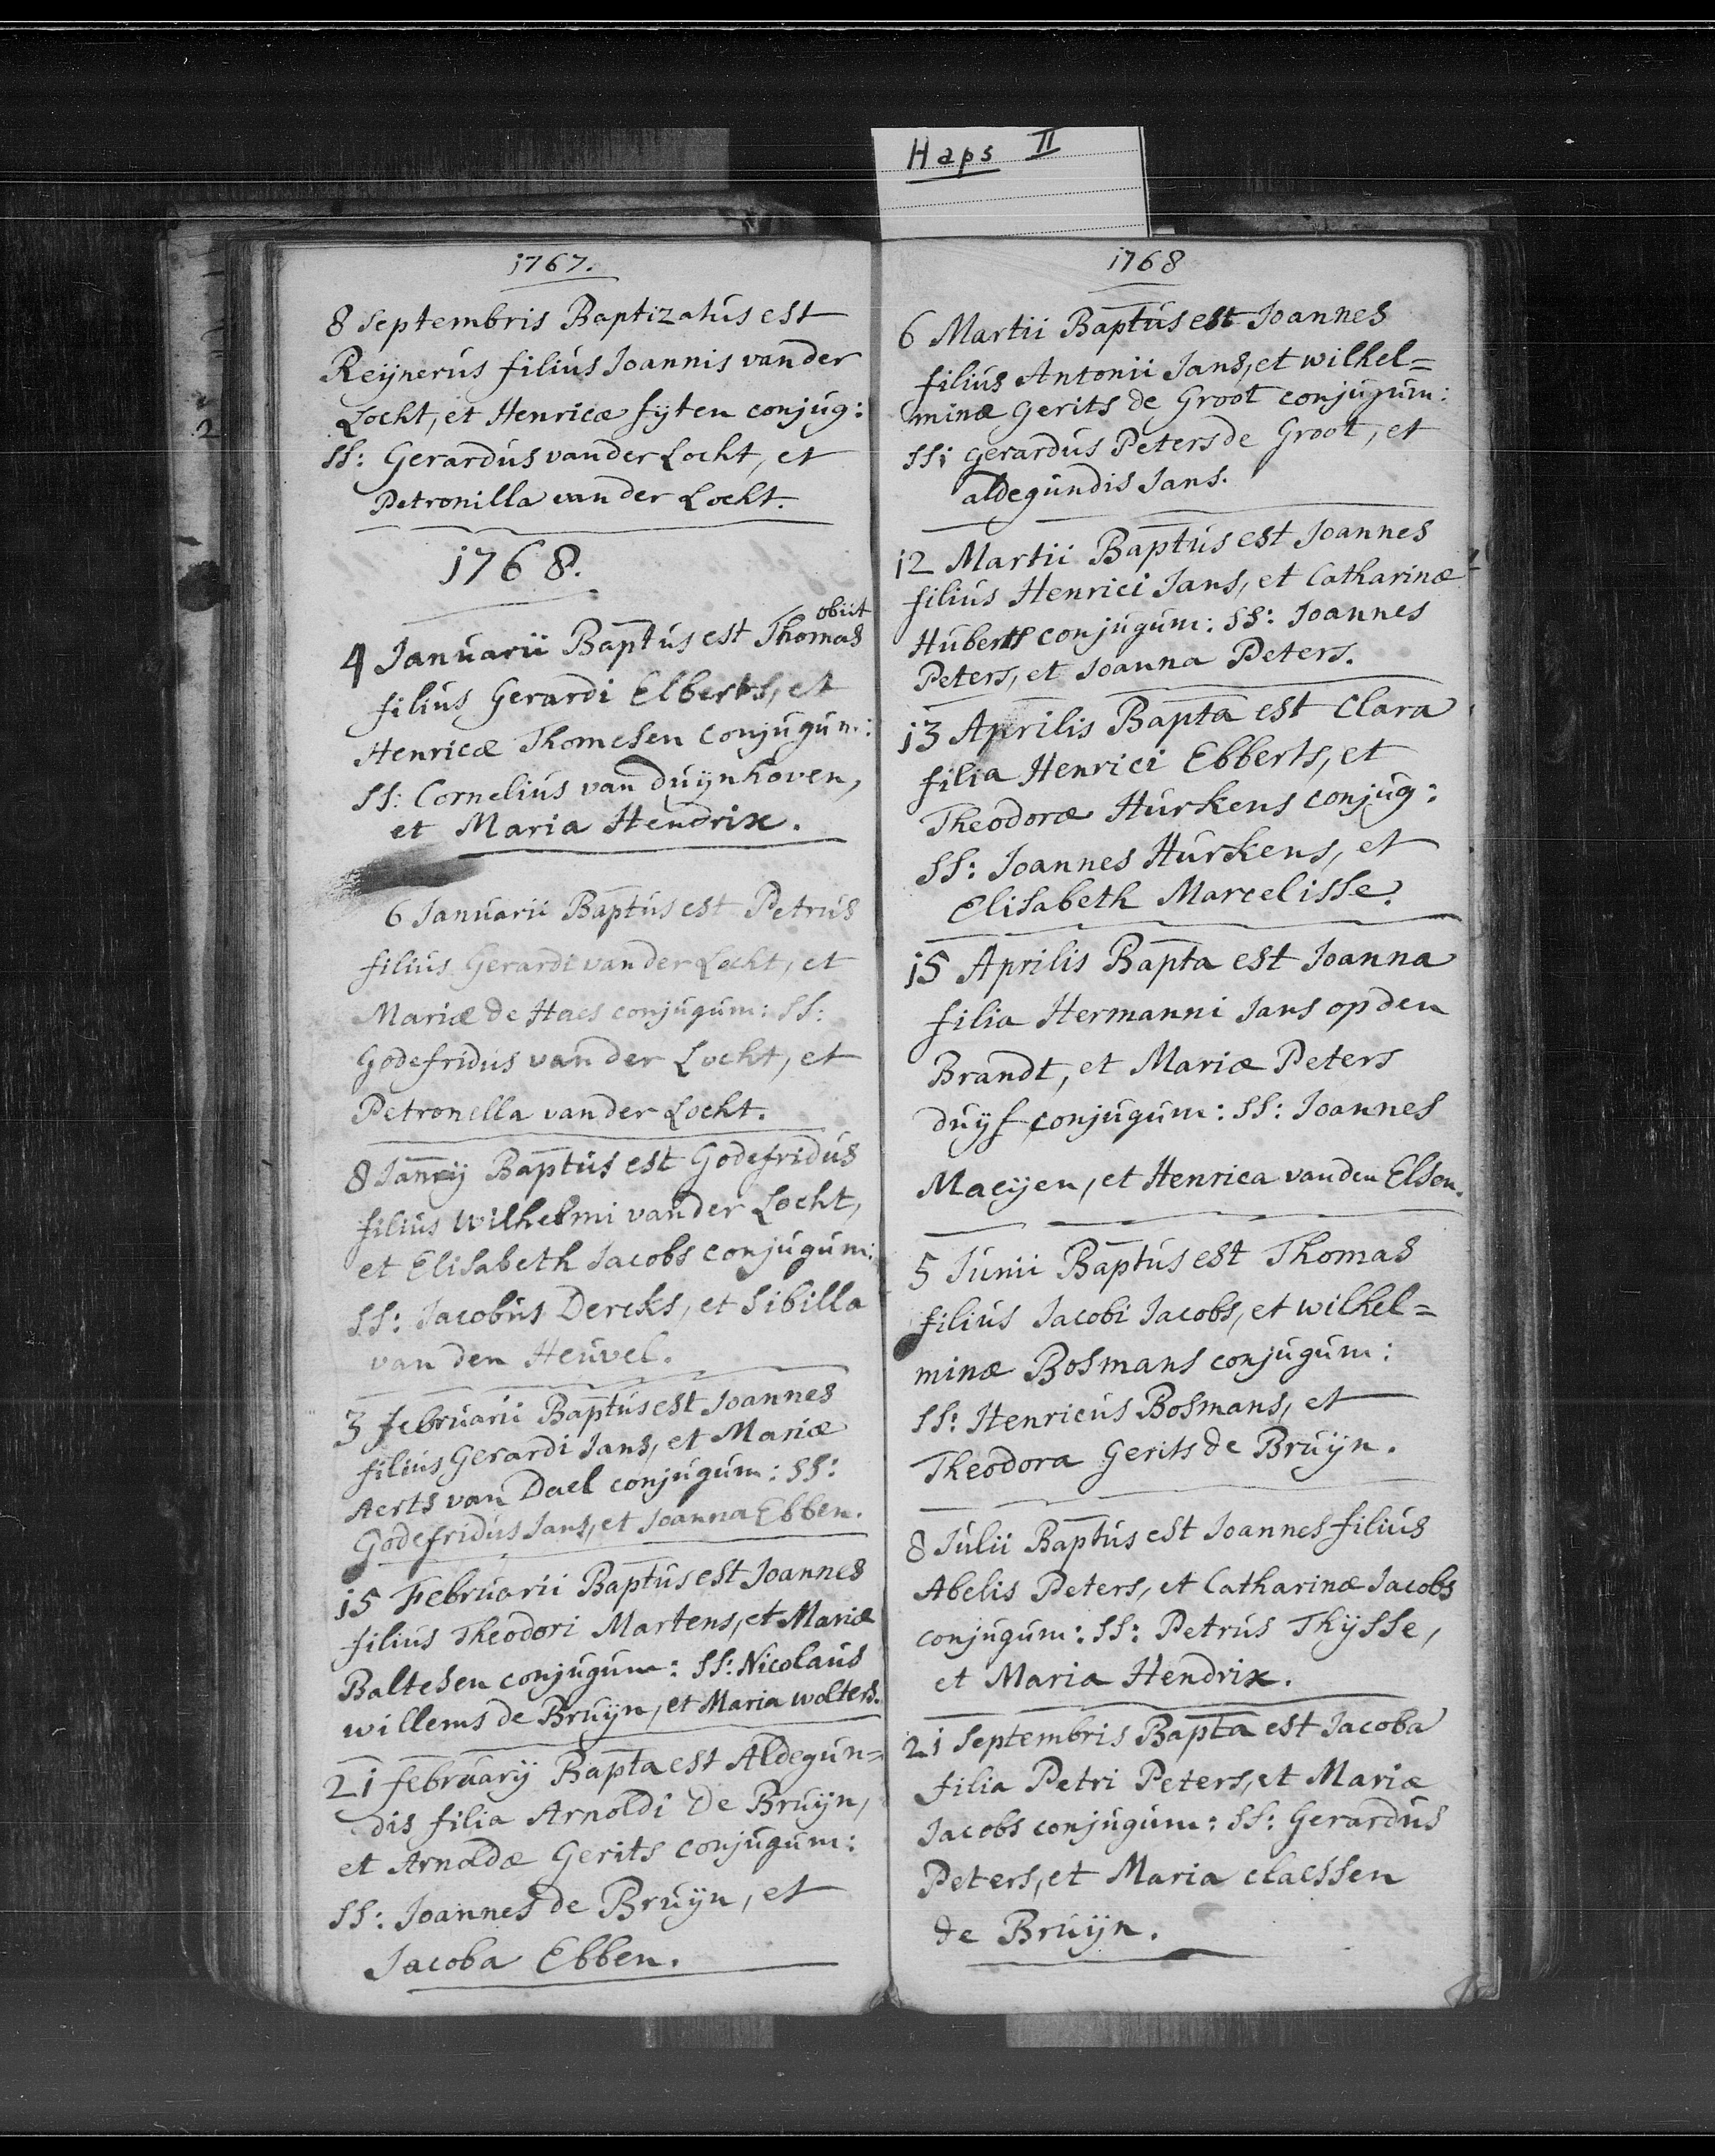 Haps II
1767.
8 Septembris Baptizatus est
Reijnerus filius Joannis van der
Locht, et Henricæ fijten conjug:
SS: Gerardus van der Locht, et
Petronilla van der Locht.
1768.
obiit
4 Januarii Baptus est Thomas
filius Gerardi Elberts, et
Henricæ Thomesen conjugum:
SS: Cornelius van duijnhoven,
et Maria Hendrix.
6 Januarii Baptus est Petrus
filius Gerardi van der Locht, et
Mariæ de Haes conjugum: SS:
Godefridus van der Locht, et
Petronella van der Locht.
8 Janrij Baptus est Godefridus
filius Wilhelmi van der Locht,
et Elisabeth Jacobs conjugum:
SS: Jacobus Dercks, et Sibilla
van den Heuvel.
3 februarii Baptus est Joannes
filius Gerardi Jans, et Mariæ
Aerts van Dael conjugum: SS:
Godefridus Jans, et Joanna Ebben.
15 Februarii Baptus est Joannes
filius Theodori Martens, et Mariæ
Baltesen conjugum: SS: Nicolaus
willems de Bruijn, et Maria wolters.
21 februarij Bapta est Aldegun=
dis filia Arnoldi de Bruijn,
et Arnoldæ Gerits conjugum:
SS: Joannes de Bruijn, et
Jacoba Ebben.
1768
6 Martii Baptus est Joannes
filius Antonii Jans, et wilhel=
minæ Gerits de Groot conjugum:
SS: Gerardus Peters de Groot, et
aldegundis Jans.
12 Martii Baptus est Joannes
filius Henrici Jans, et Catharinæ
Huberts conjugum: SS: Joannes
Peters, et Joanna Peters.
13 Aprilis Bapta est Clara
filia Henrici Ebberts, et
Theodoræ Hurkens conjug:
SS: Joannes Hurkens, et
Elisabeth Marcelisse.
15 Aprilis Bapta est Joanna
filia Hermanni Jans op den
Brandt, et Mariæ Peters
duijf conjugum: SS: Joannes
Maeijen, et Henrica van den Elsen.
5 Junii Baptus est Thomas
filius Jacobi Jacobs, et wilhel=
minæ Bosmans conjugum:
SS: Henricus Bosmans, et
Theodora Gerits de Bruijn.
8 Julii Baptus est Joannes filius
Abelis Peters, et Catharinæ Jacobs
conjugum: SS: Petrus Thijsse,
et Maria Hendrix.
21 Septembris Bapta est Jacoba
filia Petri Peters, et Mariæ
Jacobs conjugum: SS: Gerardus
Peters, et Maria claessen
de Bruijn.